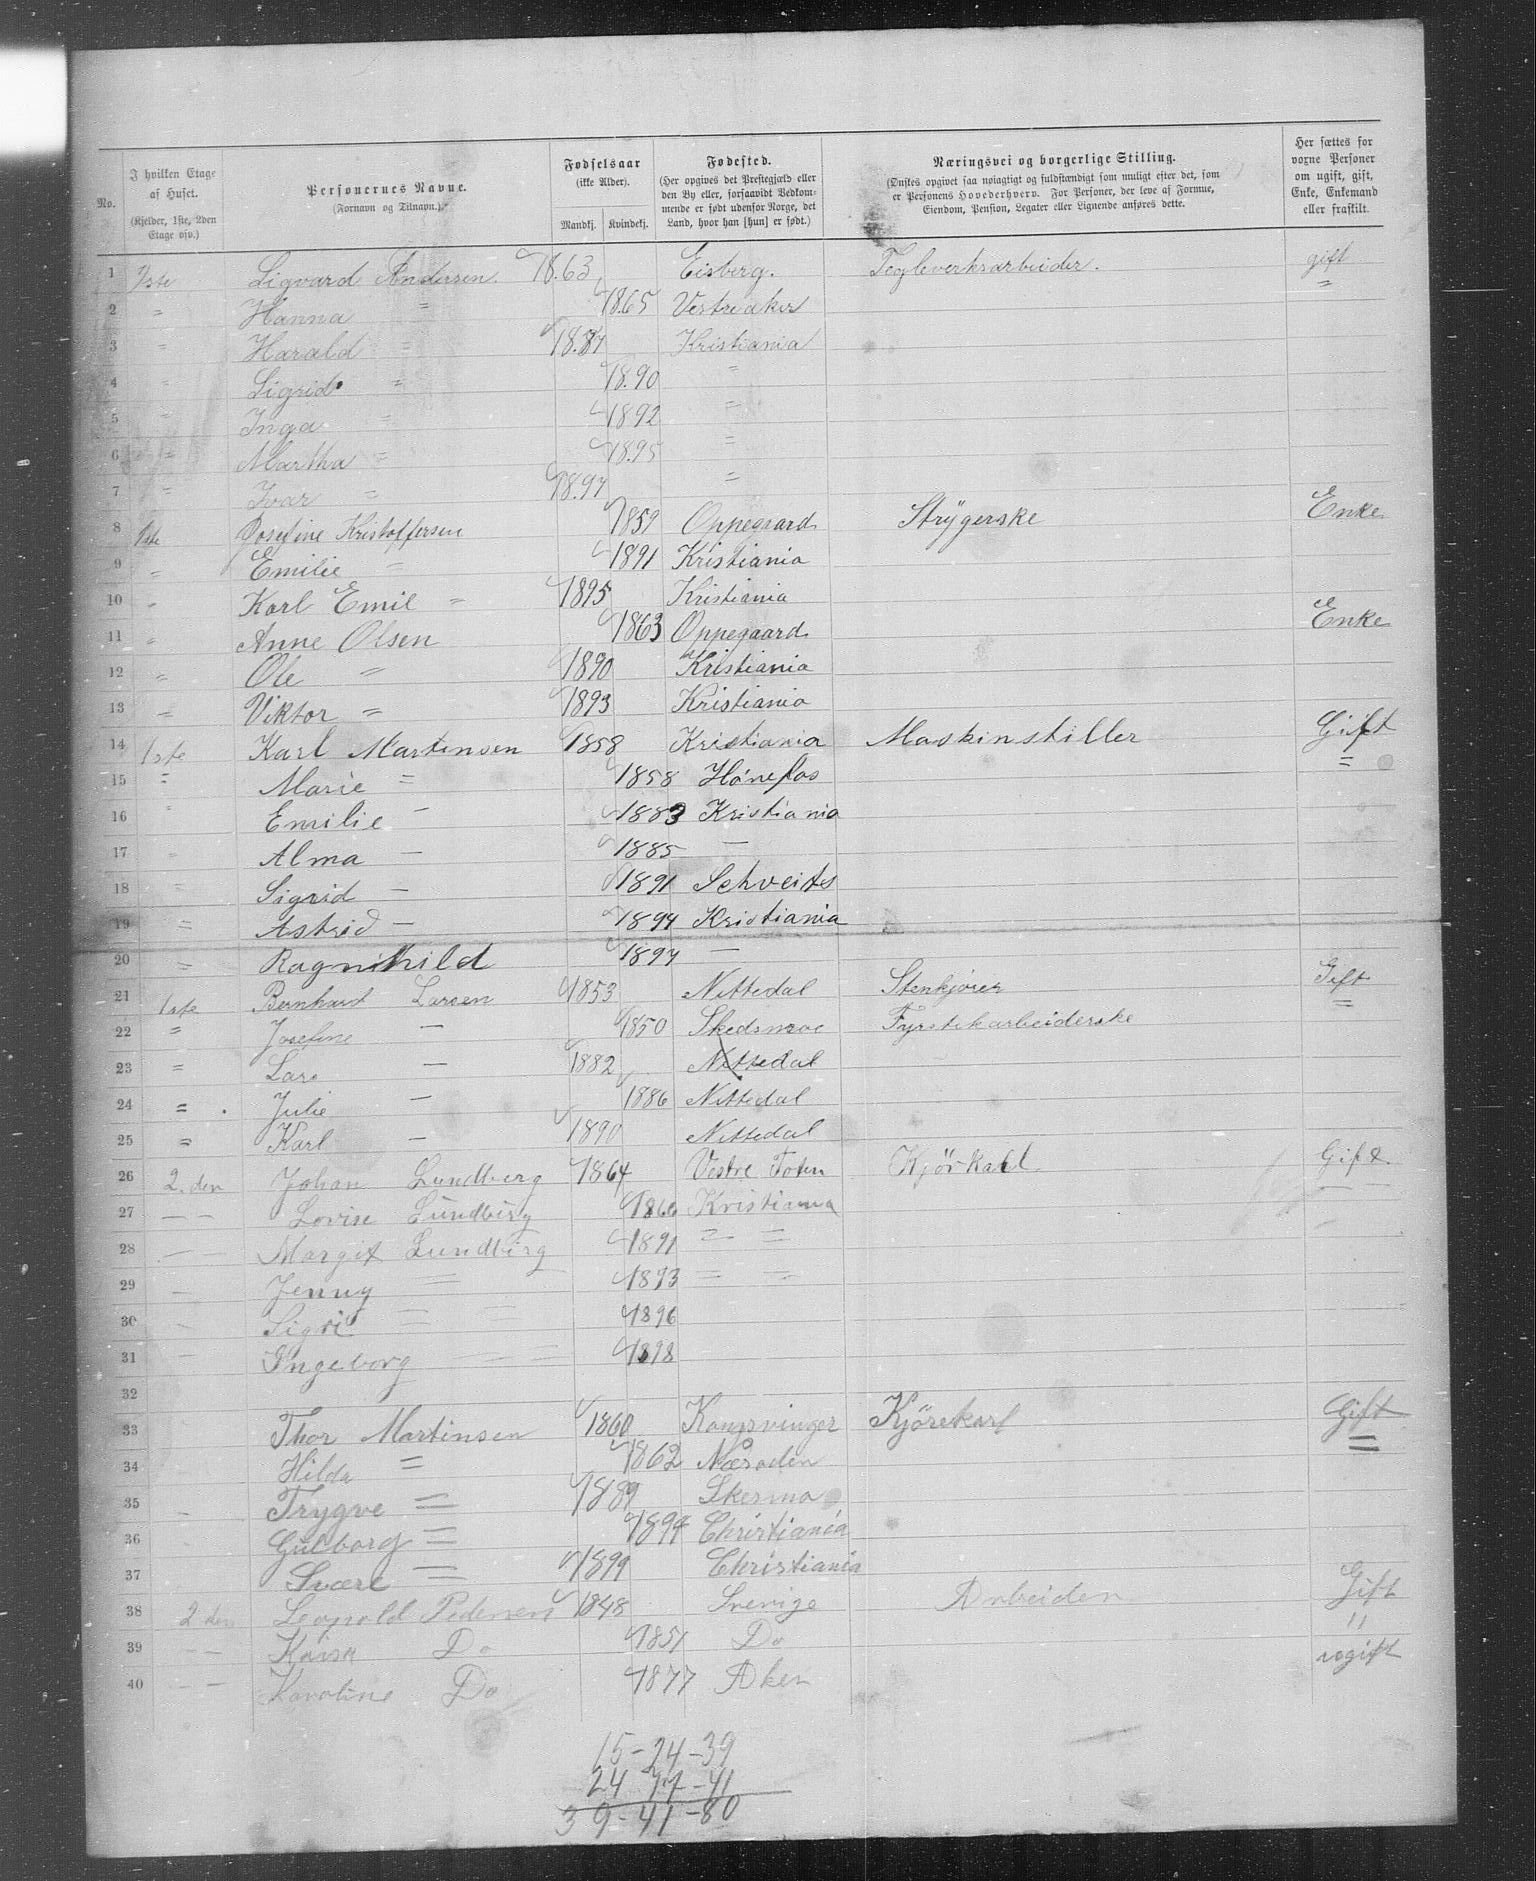 No. | I hvilken Etage af Huset. (Kjelder, 1ste, 2den Etage osv.) | Personernes Navne. (Fornavn og Tilnavn.) | Fødselsaar (ikke Alder). Mandkj. | Kvindekj. | Fødested. (Her opgives det Prestegjæld eller den By eller, forsaavidt Vedkommende er født udenfor Norge, det Land, hvor han [hun] er født.) | Næringsvei og borgerlige Stilling. (Ønskes opgivet saa nøiagtigt og fuldstændigt som muligt efter det, som er Personens Hovederhverv. For Personer, der leve af Formue, Eiendom, Pension, Legater eller Lignende anføres dette. | Her sættes for voxne Personer om ugift, gift, Enke, Enkemand eller fraskilt.
1 1ste Sigvard Andersen. 18.63 Eisberg. Teglverksarbeider. gift
2 " Hanna " 18.65 Vestreaker "
3 " Harald " 18.87 Kristiania
4 " Sigrid " 18.90 "
5 " Inga " 1892 "
6 " Martha " 18.95 "
7 " Ivar " 18.97 "
8 1ste Josefine Kristoffersen 1859 Oppegaard Strygerske Enke
9 " Emilie " 1891 Kristiania
10 " Karl Emil " 1895 Kristiania
11 " Anne Olsen 1863 Oppegaard Enke
12 " Ole " 1890 Kristiania
13 " Viktor " 1893 Kristiania
14 1ste Karl Martinsen 1858 Kristiania Maskinstiller Gift
15 " Marie " 1858 Hønefos "
16 " Emilie — 1883 Kristiania
17 " Alma — 1885 —
18 " Sigrid — 1891 Schveits
19 " Astrid — 1894 Kristiania
20 " Ragnhild 1897 —
21 1ste Bernhard Larsen 1853 Nittedal Stenkjører Gift
22 " Josefine — 1850 Skedsmoe Fyrstikarbeiderske "
23 " Lars — 1882 Nittedal
24 " Julie — 1886 Nittedal
25 " Karl — 1890 Nittedal
26 2.den Johan Lundberg 1864 Vestre Toten Kjørkall Gift
27 — — Lovise Lundberg 1860 Kristiania — —
28 — — Margit Lundberg 1891 " " —
29 — Jenny — 1893 " "
30 — Sigri — — 1896
31 — Ingeborg — — 1898
32
33 Thor Martinsen 1860 Kongsvinger Kjørekarl Gift
34 Hilda " 1862 Næsoden "
35 — Trygve " 1889 Skesmo
36 Gulborg " 1894 Christiania
37 Svære " 1899 Christiania
38 2 den Leopold Pedersen 1848 Sverige Arbeider Gift
39 — — Kaisa Do 1851 Do "
40 — — Karoline Do 1877 Aker ugift
15-24-39
24 17-41
39-41-80